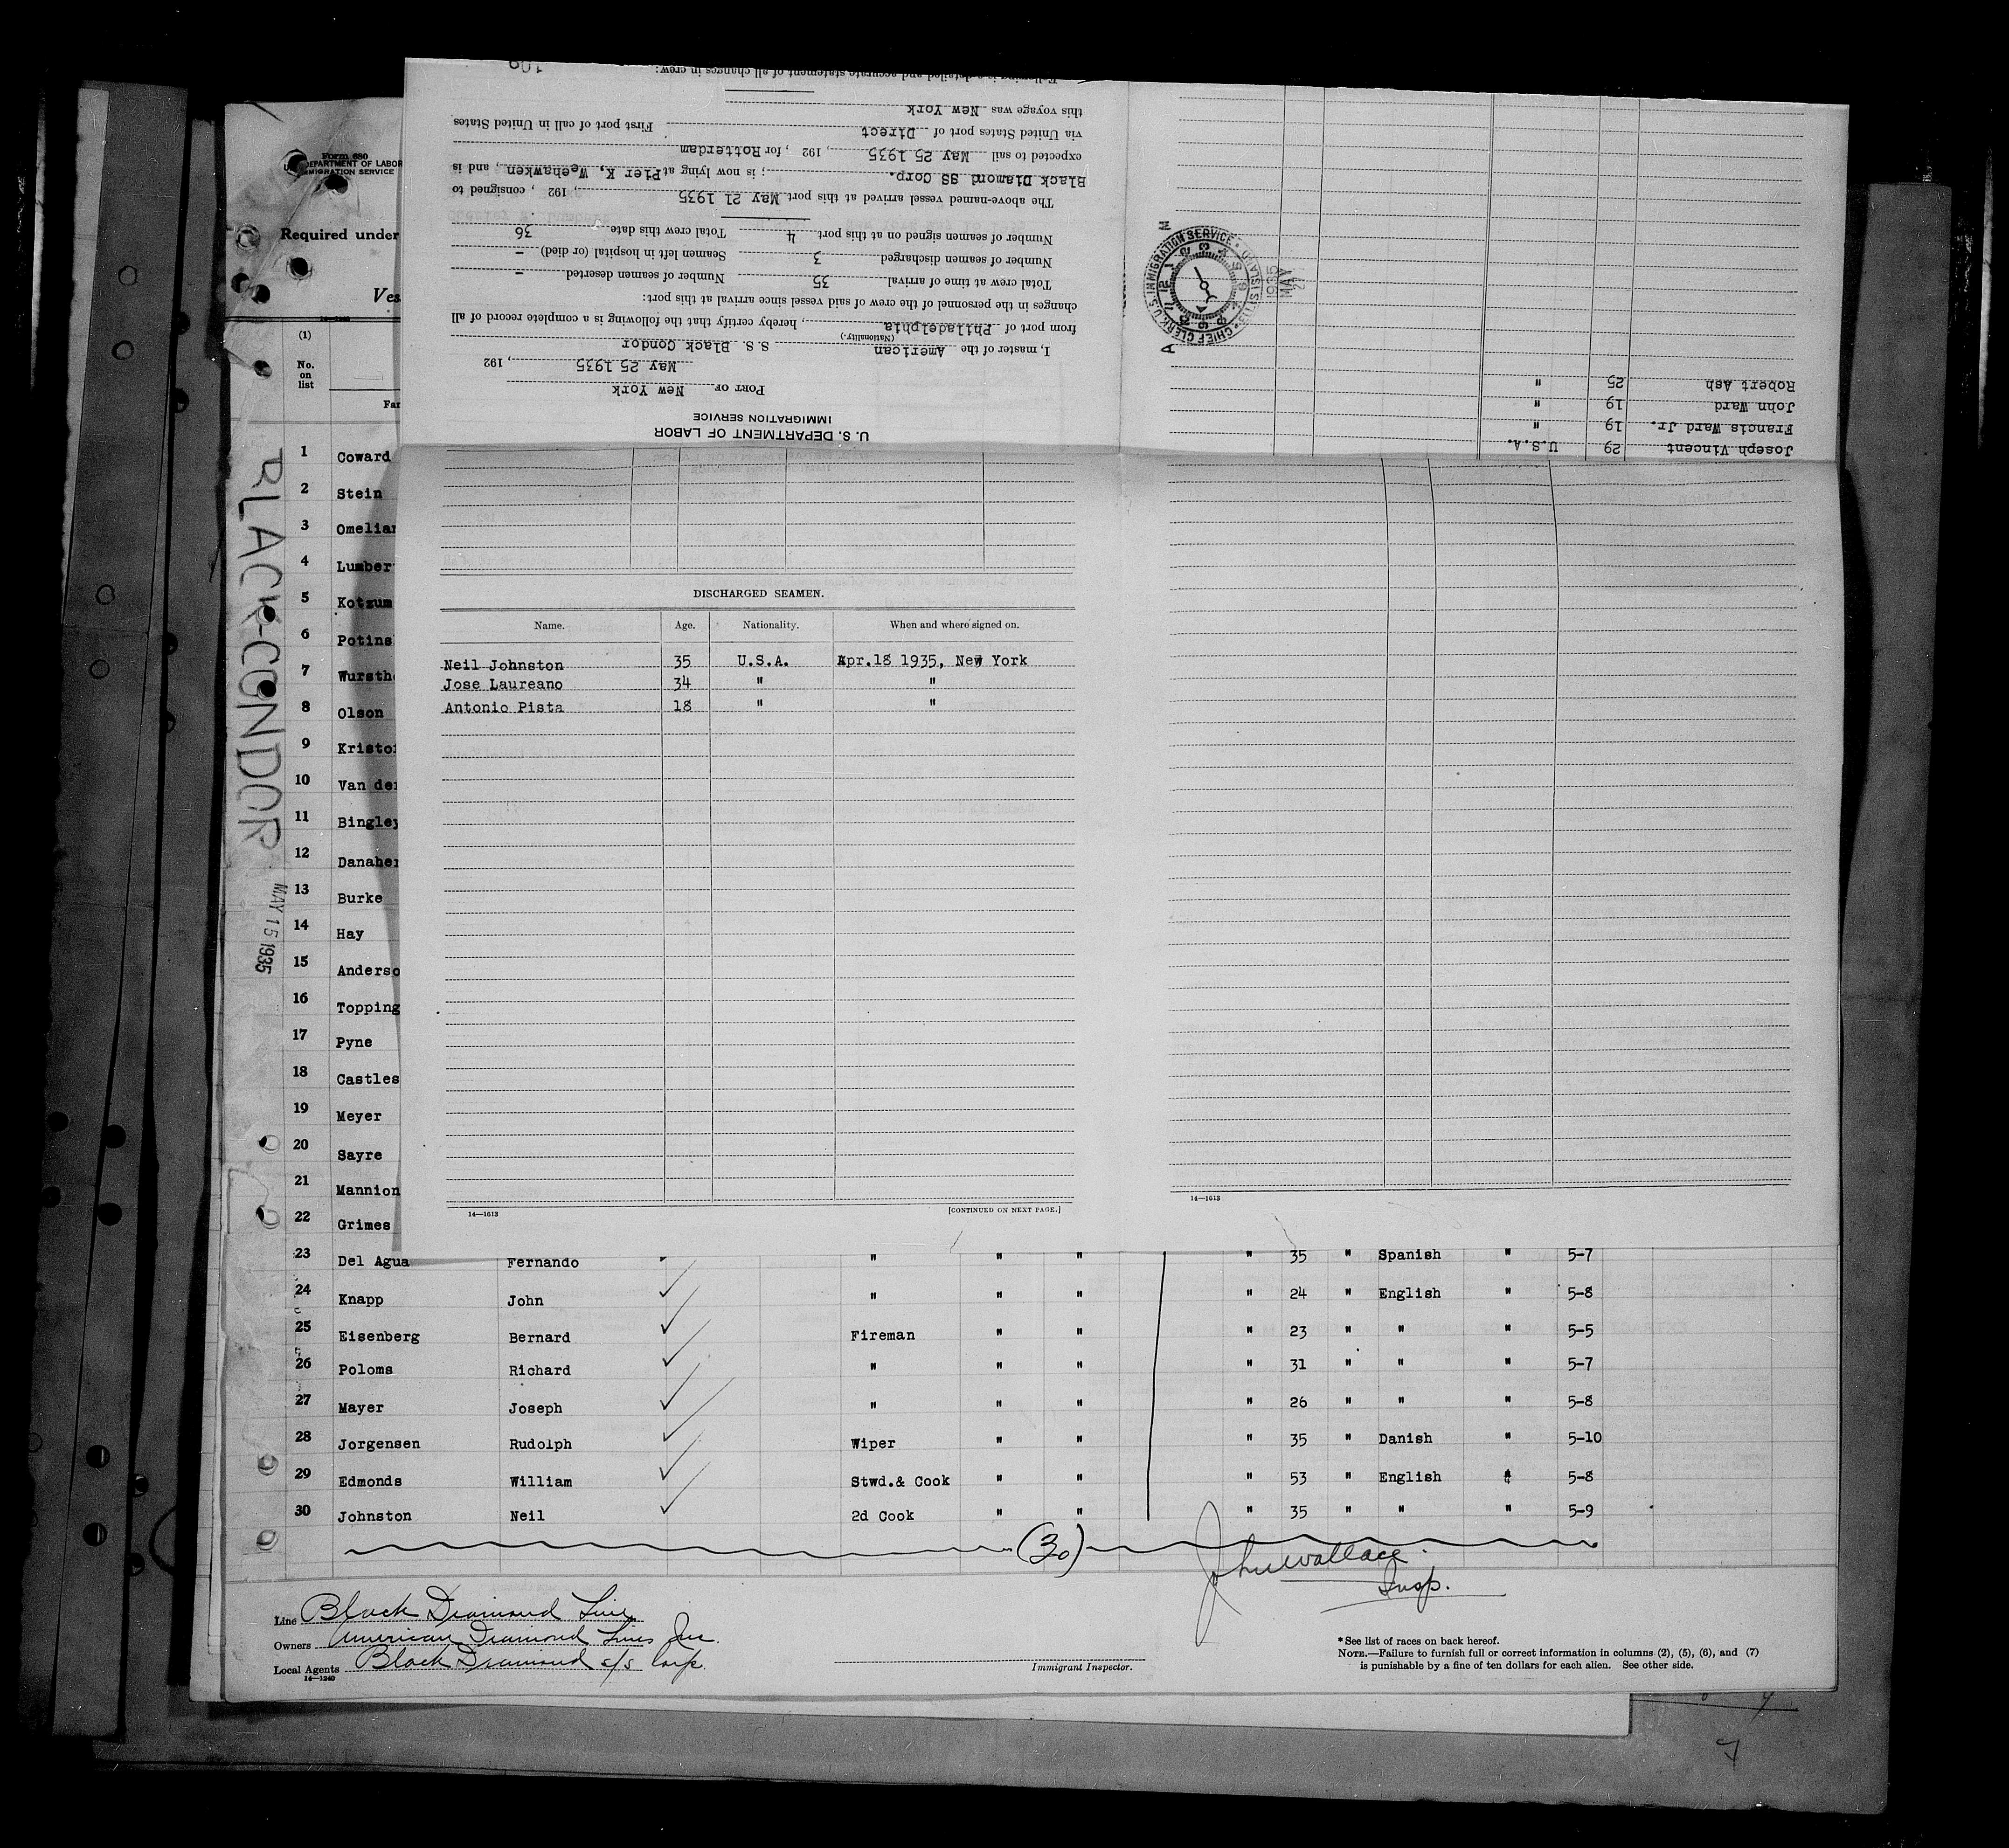 109
Following is a detailed and accurate statement of all changes in crew:
this voyage was New York
via United States port of Direct First port of call in United States
expected to sail May 25 1935, 192 , for Rotterdam
Black Diamond SS Corp. ; is now lying at Pier K, Weehawken, and is
The above-named vessel arrived at this port May 21 1935, 192 , consigned to
Number of seamen signed on at this port 4 Total crew this date 36
Number of seamen discharged 3 Seamen left in hospital (or died) -
Total crew at time of arrival 35 Number of seamen deserted -
changes in the personnel of the crew of said vessel since arrival at this port:
from port of Philadelphia, hereby certify that the following is a complete record of all
(Nationality.)
I, master of the American S. S. Black Condor
May 25 1935, 192
PORT OF New York
IMMIGRATION SERVICE
U. S. DEPARTMENT OF LABOR
U.S. IMMIGRATION SERVICE
CHIEF CLERK
1935
MAY
Robert Ash 25 "
John Ward 19 "
Francis Ward Jr. 19 "
Joseph Vincent 29 U.S.A.
Form 680
DEPARTMENT OF LABOR
IMMIGRATION SERVICE
Required under
Ves
14-1240
(1)
No.
on
list
Fa
BLACK-CONDOR
MAY 15 1935
1 Coward
2 Stein
3 Omelia
4 Lumber
5 Kotzum
6 Potins
7 Wursth
8 Olson
9 Kristo
10 Van de
11 Bingley
12 Danaher
13 Burke
14 Hay
15 Anderso
16 Topping
17 Pyne
18 Castles
19 Meyer
20 Sayre
21 Mannion
22 Grimes
DISCHARGED SEAMEN.
Name. Age. Nationality. When and where signed on.
Neil Johnston 35 U.S.A. Apr.18 1935, New York
Jose Laureano 34 " "
Antonio Pista 18 " "
14—1613 [CONTINUED ON NEXT PAGE.]
14—1613
23 Del Agua Fernando " " " " 35 " Spanish " 5-7
24 Knapp John " " " " 24 " English " 5-8
25 Eisenberg Bernard Fireman " " " 23 " " " 5-5
26 Poloms Richard " " " " 31 " " " 5-7
27 Mayer Joseph " " " " 26 " " " 5-8
28 Jorgensen Rudolph Wiper " " " 35 " Danish " 5-10
29 Edmonds William Stwd.& Cook " " " 53 " English " 5-8
30 Johnston Neil 2d Cook " " " 35 " " " 5-9
(30)
John Wallace
Insp.
Line Black Diamond Line
Owners American Diamond Lines Inc.
Local Agents Black Diamond s/s Corp.
14—1240
Immigrant Inspector.
* See list of races on back hereof.
NOTE.—Failure to furnish full or correct information in columns (2), (5), (6), and (7)
is punishable by a fine of ten dollars for each alien. See other side.